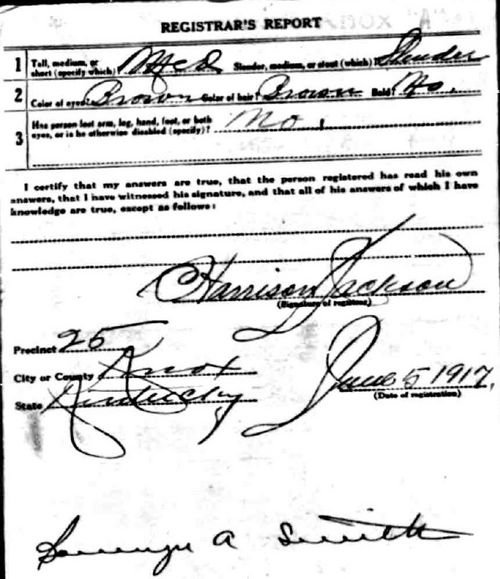 REGISTRAR'S REPORT
1 Tall, medium, or short (specify which)? Med Slender, medium, or stout (which)? Slender
2 Color of eyes? Brown Color of hair? Brown Bald? No.
3 Has person lost arm, leg, hand, foot, or both eyes, or is he otherwise disabled (specify)? No.
I certify that my answers are true, that the person registered has read his own
answers, that I have witnessed his signature, and that all of his answers of which I have
knowledge are true, except as follows:
Harrison Jackson
(Signature of registrar)
Precinct 25
City or County Knox
State Kentucky
June 5 1917
(Date of registration)
A Smith